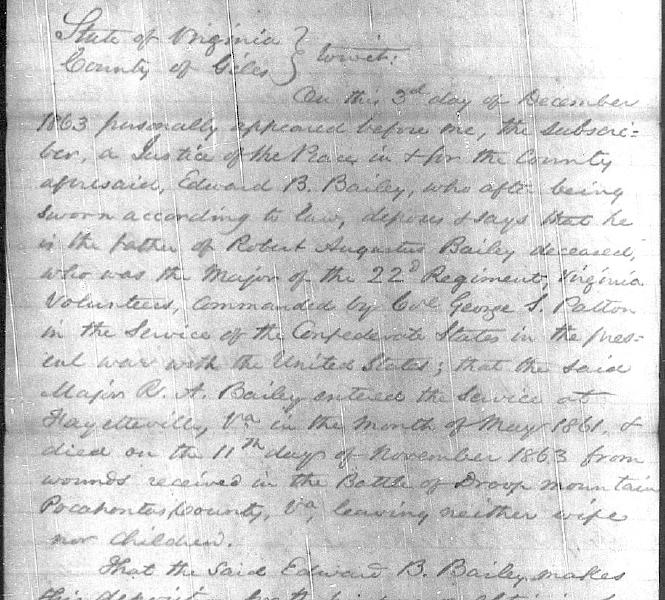 State of Virginia }
County of Giles } towit:
On this 3rd day of December
1863 personally appeared before me, the subscri=
ber, a Justice of the Peace in & for the County
aforesaid, Edward B. Bailey, who after being
sworn according to law, deposes & says that he
is the father of Robert Augustus Bailey deceased,
who was the Major of the 22d Regiment, Virginia
Volunteers, commanded by Col. George S. Patton
in the Service of the Confederate States in the pres=
ent war with the United States; that the said
Major R. A. Bailey entered the Service at
Fayetteville, Va in the month of May 1861, &
died on the 11th day of November 1863 from
wounds received in the Battle of Droop mountain
Pocahontas County, Va, leaving neither wife
nor children.
That the said Edward B. Bailey makes
this